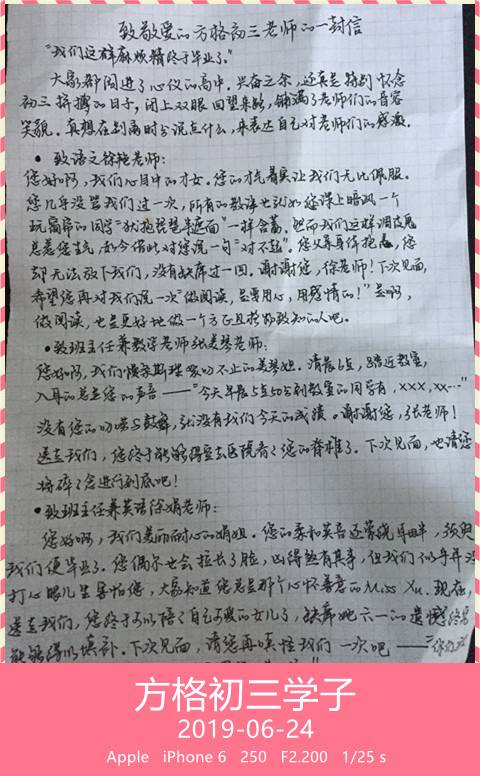 致敬爱的方格初三老师的一封信
"我们这群麻烦精终于毕业了。"
大家都阅进了心仪的高中。兴奋之余,还真是特别怀念
初三拼搏的日子,闭上双眼回望来路,铺满了老师们的音容
笑貌。真想在别离时分说点什么,来表达自己对老师们的感激。
• 致语文徐艳老师:
您好啊,我们心目中的才女。您的才气着实让我们无比佩服。
您几乎没骂我们过一次,所有的教诲也就如您课上暗讽一个
玩窗帘的同学"犹抱琵琶半遮面"一样含蓄。然而我们这样调皮鬼
总惹您生气,如今借此对您说一句"对不起"。您父亲身体抱恙,您
却无法放下我们,没有缺席过一回。谢谢您,徐老师!下次见面,
希望您再对我们说一次"做阅读,是要用心,用感情的!"是啊,
做阅读,也是更好地做一个方正且格物致知的人吧。
• 致班主任兼数学老师张美琴老师:
您好啊,我们慷爱斯理唠叨不止的美琴姐。清晨6点,踏近教室,
入耳的总是您的声音——"今天早晨5点50分到教室的同学有,xxx,xx…"
没有您的叨唠与鼓舞,就没有我们今天的成绩。谢谢您,张老师!
送走我们,您终于能够得空去医院看看您的脊椎了。下次见面,也请您
将碎碎念进行到底吧!
• 致班主任兼英语徐娟老师:
您好啊,我们美丽耐心的娟姐。您的柔和英音还萦绕耳畔,
我们便毕业了。您偶尔也会拉长了脸,凶得煞有其事,但我们似乎并没
打心眼儿里害怕您,大家知道您总是那个心怀善意的Miss Xu。现在,
送走我们,您终于可以陪陪自己可爱的女儿了,缺席她六一的遗憾终究
能够得以填补。下次见面,请您再嗔怪我们一次吧——"你们
方格初三学子
2019-06-24
Apple iPhone 6 250 F2.200 1/25 s